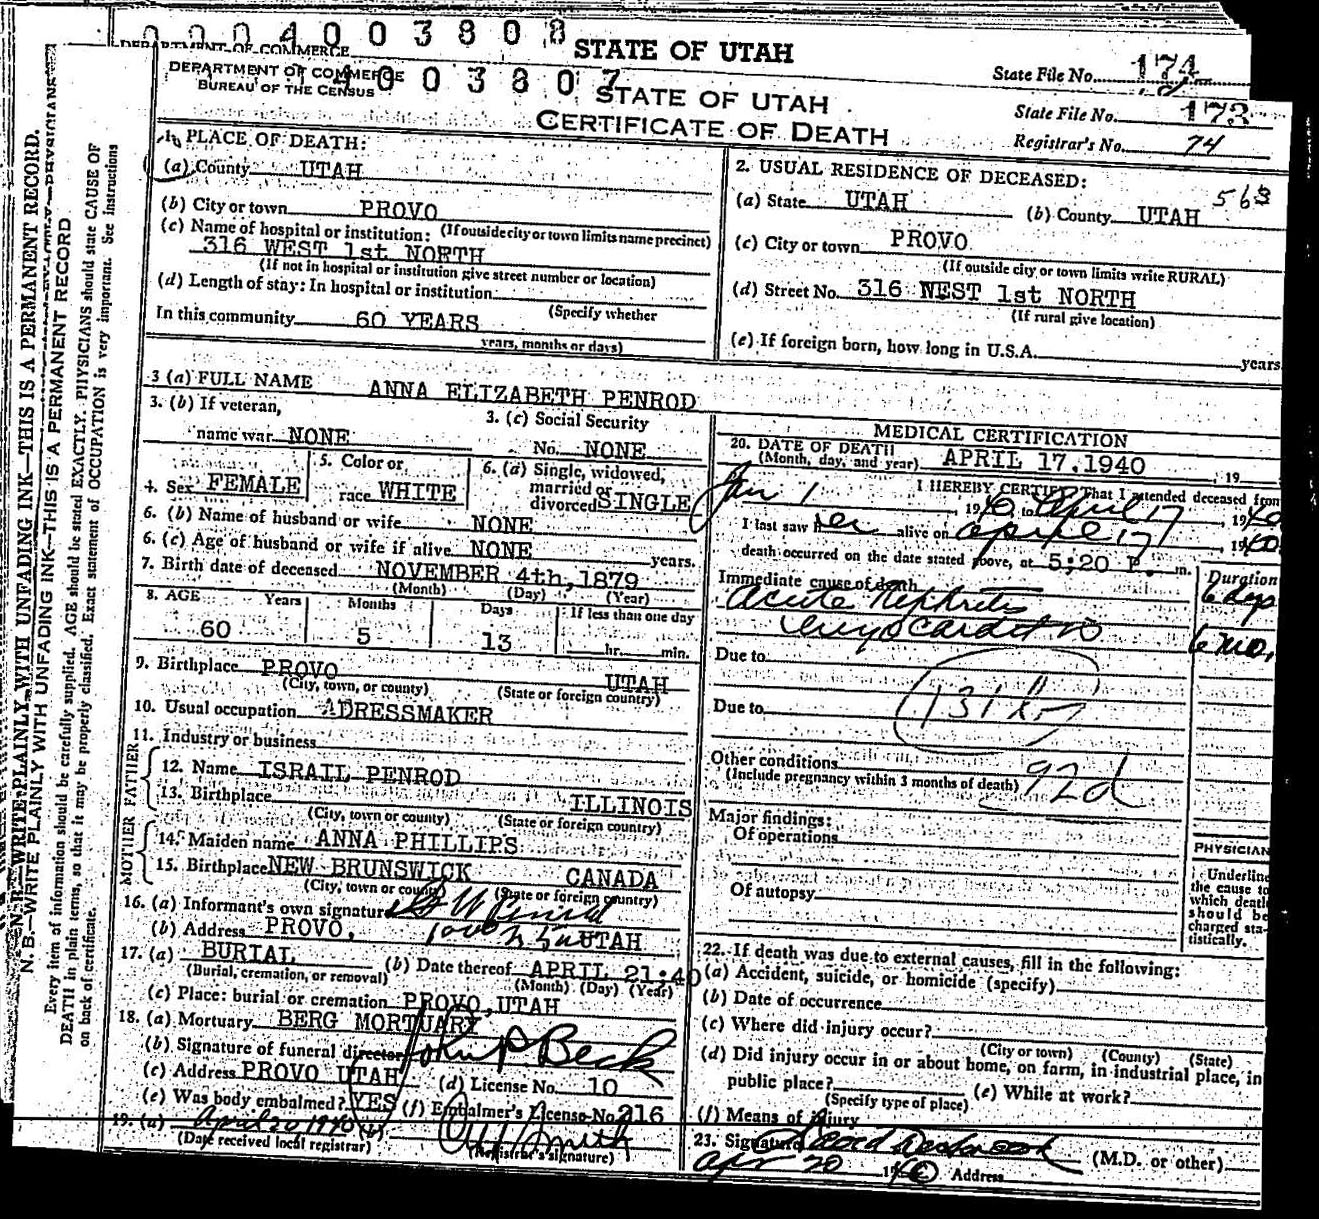 0004003808
STATE OF UTAH
DEPARTMENT OF COMMERCE
State File No. 174
DEPARTMENT OF COMMERCE
BUREAU OF THE CENSUS
4003807
STATE OF UTAH
State File No. 173
CERTIFICATE OF DEATH
Registrar's No. 74
N. B.—WRITE PLAINLY WITH UNFADING INK—THIS IS A PERMANENT RECORD.
N. B.—WRITE PLAINLY WITH UNFADING INK—THIS IS A PERMANENT RECORD
Every item of information should be carefully supplied. AGE should be stated EXACTLY. PHYSICIANS should state CAUSE OF
DEATH in plain terms, so that it may be properly classified. Exact statement of OCCUPATION is very important. See instructions
on back of certificate.
1. PLACE OF DEATH:
(a) County UTAH
(b) City or town PROVO
(c) Name of hospital or institution: (If outside city or town limits name precinct)
316 WEST 1st NORTH
(If not in hospital or institution give street number or location)
(d) Length of stay: In hospital or institution
(Specify whether
In this community 60 YEARS
years, months or days)
2. USUAL RESIDENCE OF DECEASED:
563
(a) State UTAH (b) County UTAH
(c) City or town PROVO
(If outside city or town limits write RURAL)
(d) Street No. 316 WEST 1st NORTH
(If rural give location)
(e) If foreign born, how long in U.S.A. years
3 (a) FULL NAME ANNA ELIZABETH PENROD
3. (b) If veteran,
name war NONE
3. (c) Social Security
No. NONE
4. Sex FEMALE
5. Color or
race WHITE
6. (a) Single, widowed,
married or
divorced SINGLE
6. (b) Name of husband or wife NONE
6. (c) Age of husband or wife if alive NONE years.
7. Birth date of deceased NOVEMBER 4th, 1879
(Month) (Day) (Year)
8. AGE Years Months Days If less than one day
60 5 13 hr. min.
9. Birthplace PROVO UTAH
(City, town, or county) (State or foreign country)
10. Usual occupation ADRESSMAKER
11. Industry or business
FATHER
12. Name ISRAIL PENROD
13. Birthplace ILLINOIS
(City, town or county) (State or foreign country)
MOTHER
14. Maiden name ANNA PHILLIPS
15. Birthplace NEW BRUNSWICK CANADA
(City, town or county) (State or foreign country)
16. (a) Informant's own signature Penrod
(b) Address PROVO, UTAH
17. (a) BURIAL (b) Date thereof APRIL 21;40
(Burial, cremation, or removal) (Month) (Day) (Year)
(c) Place: burial or cremation PROVO, UTAH
18. (a) Mortuary BERG MORTUARY
(b) Signature of funeral director John P Beck
(c) Address PROVO UTAH (d) License No. 10
(e) Was body embalmed? YES (f) Embalmer's License No. 216
19. (a) April 20 1940 (b) Smith
(Date received local registrar) (Registrar's signature)
MEDICAL CERTIFICATION
20. DATE OF DEATH
(Month, day, and year) APRIL 17, 1940, 19
I HEREBY CERTIFY, That I attended deceased from
Jan 1, 1940 to April 17, 1940
I last saw her alive on April 17, 1940
death occurred on the date stated above, at 5:20 P. m.
Immediate cause of death
Duration
Acute Nephritis 6 days
Myocarditis 6 mo.
Due to
Due to
Other conditions
(Include pregnancy within 3 months of death) 92d
Major findings:
Of operations
Of autopsy
PHYSICIAN
Underline
the cause to
which death
should be
charged sta-
tistically.
22. If death was due to external causes, fill in the following:
(a) Accident, suicide, or homicide (specify)
(b) Date of occurrence
(c) Where did injury occur?
(City or town) (County) (State)
(d) Did injury occur in or about home, on farm, in industrial place, in
public place? (e) While at work?
(Specify type of place)
(f) Means of injury
23. Signature (M.D. or other)
Apr 20 1940 Address